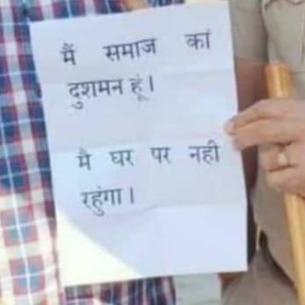 मैं समाज का
दुशमन हूं।
मै घर पर नही
रहुंगा।